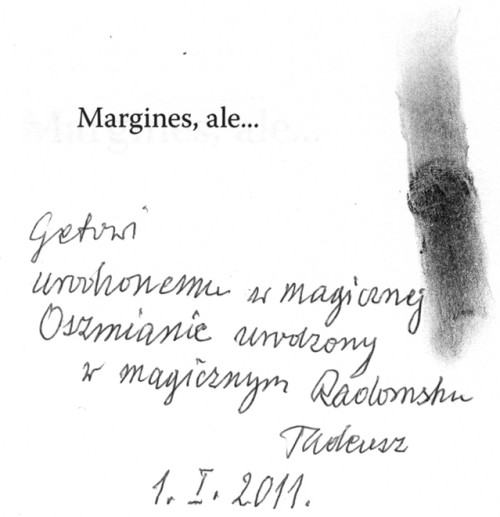 Margines, ale...
Getowi
urodzonemu w magicznej
Oszmianie urodzony
w magicznym Radomsku
Tadeusz
1. I. 2011.